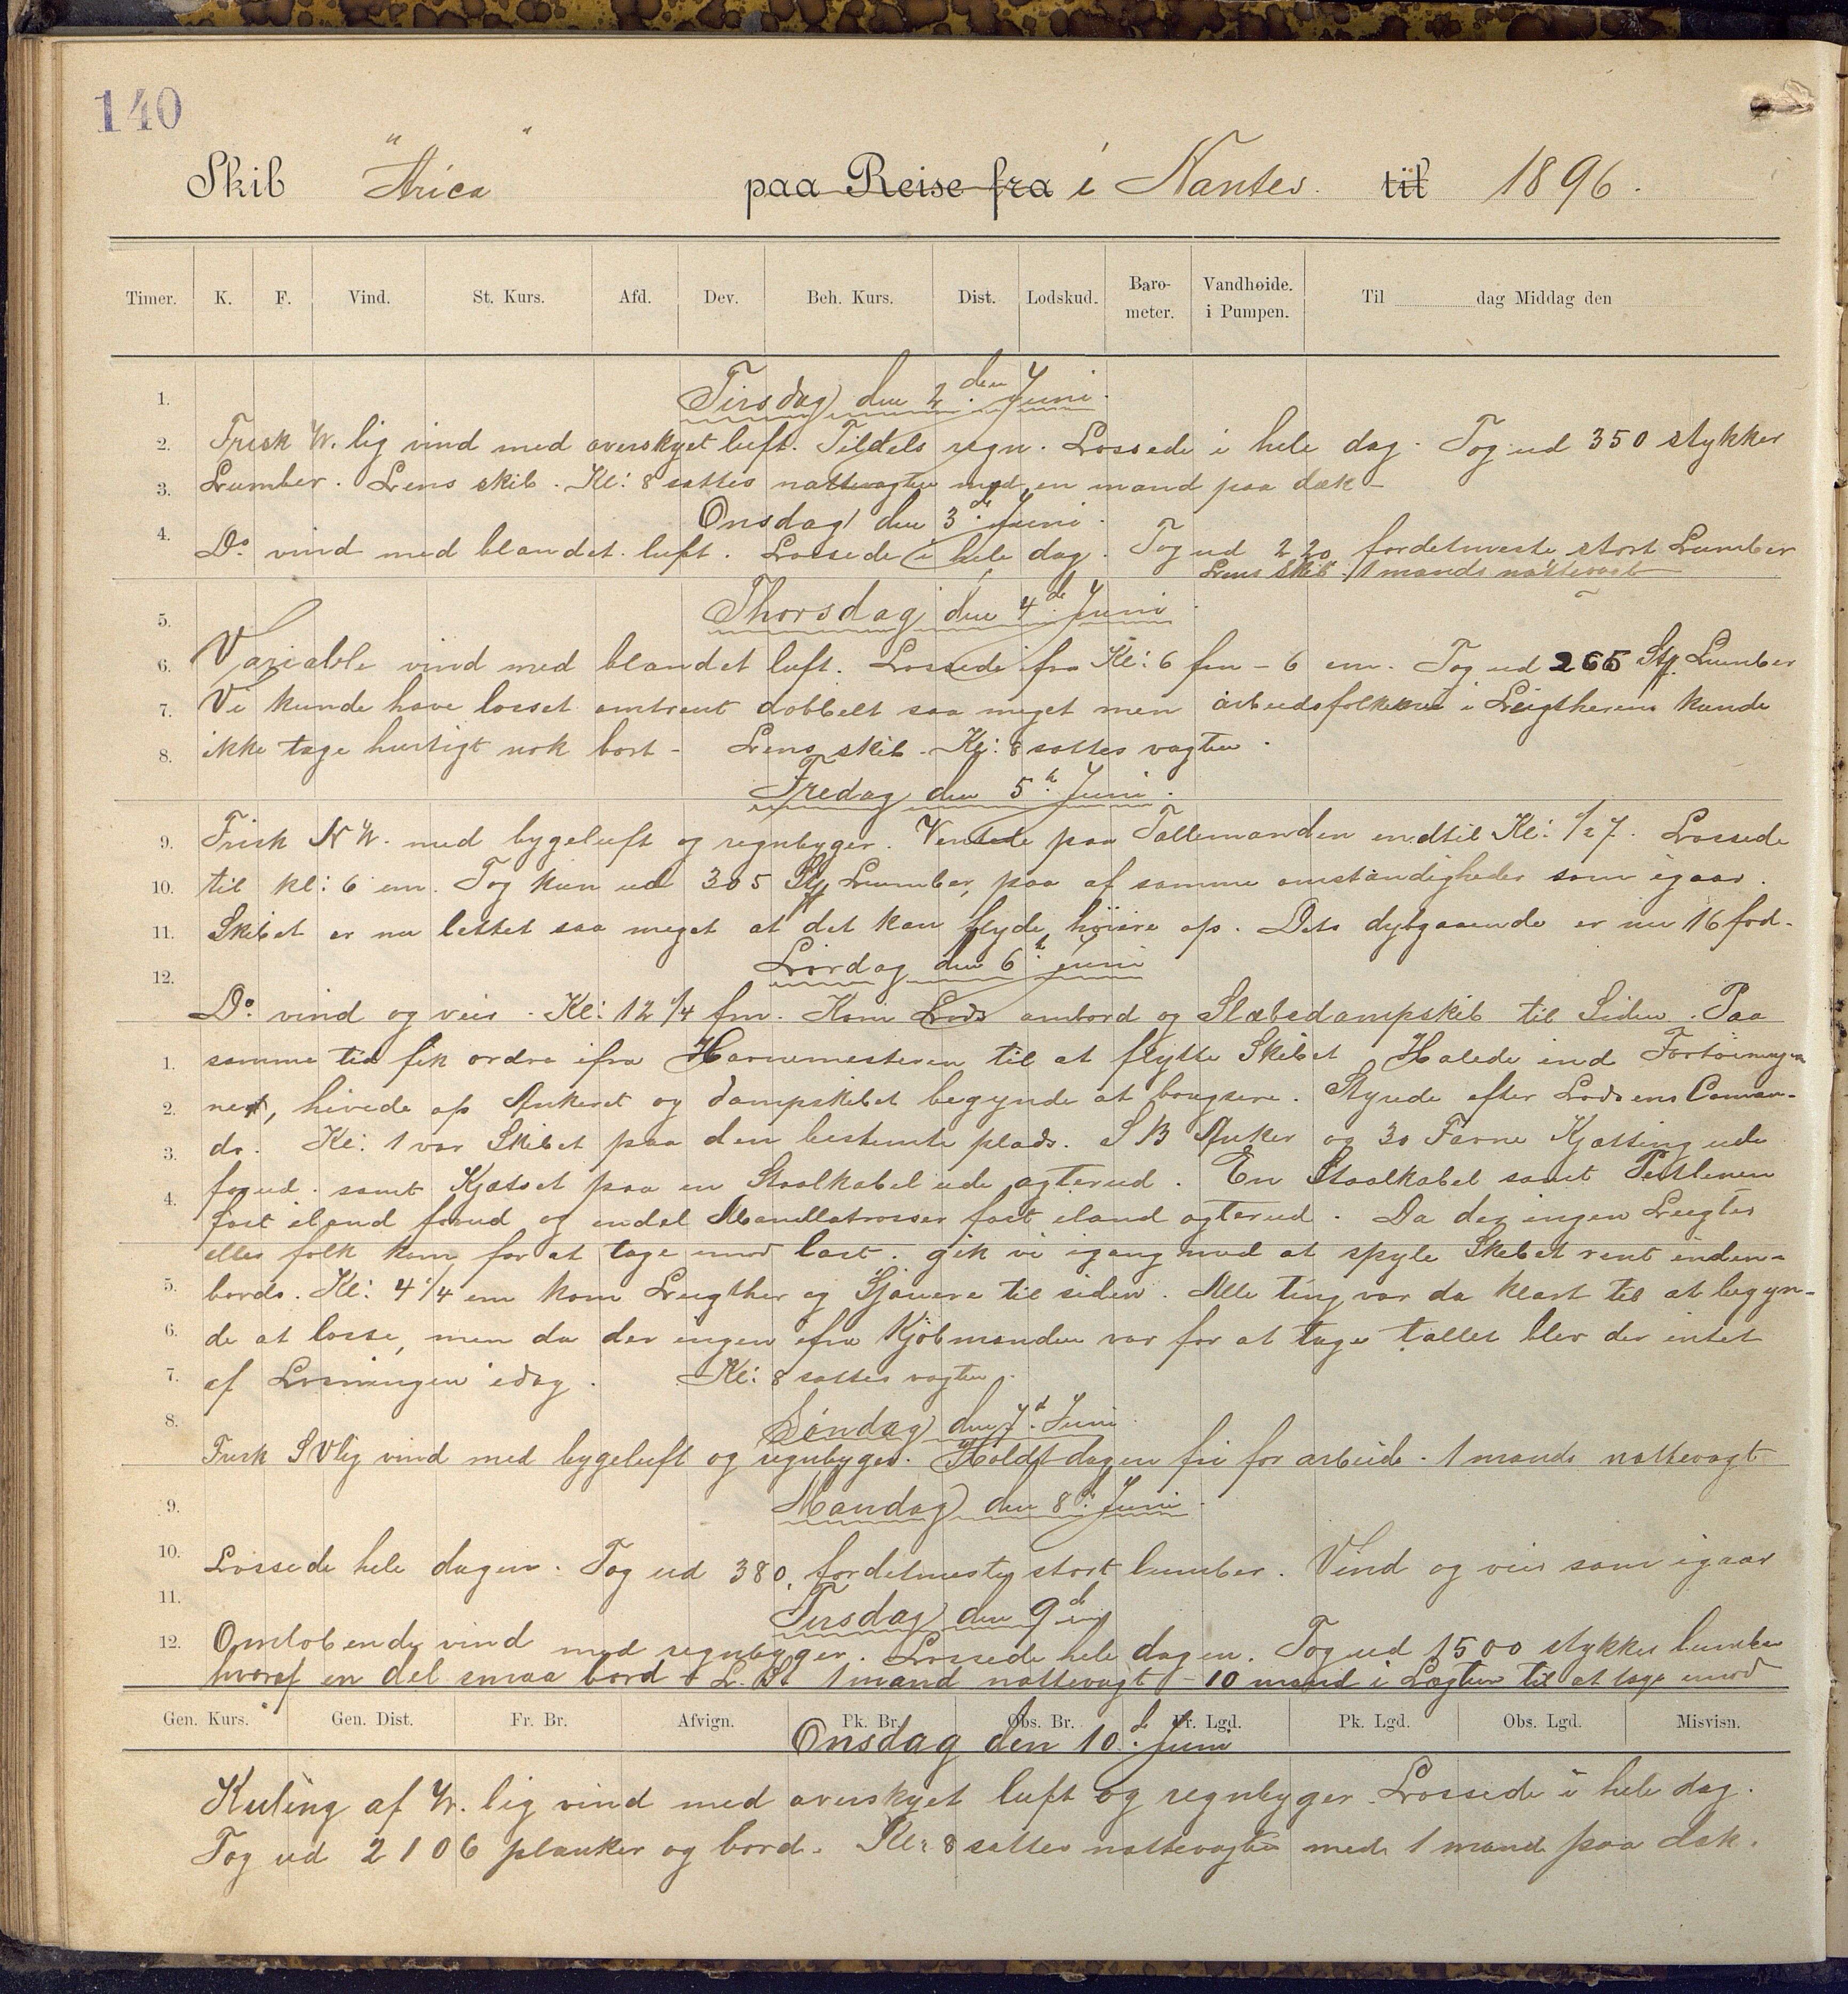 140
Skib "Arica" paa Reise fra i Nantes. til 1896.
Timer. K. F. Vind. St. Kurs. Afd. Dev. Beh. Kurs. Dist. Lodskud. Baro-meter. Vandhøide. i Pumpen. Til dag Middag den
1. Tirsdag den 2den Juni.
2. Frisk W. lig vind med overskyet luft. Tildels regn. Lossede i hele dag. Tog ud 350 stykker
3. Lumber. Lens skib. Kl: 8 sattes nattevagten med en mand paa dæk
Onsdag den 3d. Juni.
4. Do. vind med blandet luft. Lossede i hele dag. Tog ud 220 fordetmeste stort Lumber
Lens skib. 1 mands nattevagt
5. Thorsdag den 4de. Juni.
6. Variable vind med blandet luft. Lossede fra Kl: 6 fm - 6 em. Tog ud 265 Stk. Lumber
7. Vi kunde have losset omtrent dobbelt saa meget men arbeidsfolkene i Leigtheren kunde
8. ikke tage hurtigt nok bort - Lens skib. Kl: 8 sattes vagten.
Fredag den 5t. Juni.
9. Frisk NW. med bygeluft og regnbyger. Ventede paa Tallemanden indtil Kl: 1/2 7. Lossede
10. til kl: 6 em. Tog kun ud 305 Stk Lumber, paa af samme omstændigheder som igaar.
11. Skibet er nu lettet saa meget at det kan flyde høiere op. Dets dybgaaende er nu 16 fod.
12. Lørdag den 6t. Juni
Do. vind og veir. Kl: 12 1/4 fm. Kom Lods ombord og Slæbedampskib til Siden. Paa
1. samme tid fik ordre ifra Havnemesteren til at flytte Skibet. Halede ind Fortøininger
2. ne, hivede op Ankeret og dampskibet begynde at bougsere. Styrede efter Lodsens Comman-
3. do. Kl: 1 var Skibet paa den bestemte plads. S B Anker og 30 Favne Kjætting ude
4. forud. samt Kjætset paa en Staalkabel ude agterud. En Staalkabel samt Pertlinen
fast iland forud og endel Manillatrosser fast iland agterud. Da der ingen Leigter
eller folk kom for at tage imod last. gik vi igang med at spyle Skibet rent inden-
5. bords. Kl: 4 1/4 em kom Leigther og Sjauere til siden. Alle ting var da klart til at begyn-
6. de at losse, men da der ingen ifra Kjöbmanden var for at tage tallet blev der intet
7. af Losningen idag. Kl: 8 sattes vagten.
8. Söndag den 7d. Juni.
Frisk SVlig vind med bygeluft og regnbyger. Holdt dagen fri for arbeide. 1 mands nattevagt
9. Mandag den 8d. Juni.
10. Lossede hele dagen. Tog ud 380, fordetmeste stort lumber. Vind og veir som igaar
11. Tirsdag den 9de
12. Omløbende vind med regnbyger. Lossede hele dagen. Tog ud 1500 stykker lumber
hvoraf en del smaa bord L. St 1 mand nattevagt - 10 mand i Lægteren til at tage imod
Gen. Kurs. Gen. Dist. Fr. Br. Afvign. Pk. Br. Obs. Br. Fr. Lgd. Pk. Lgd. Obs. Lgd. Misvisn.
Onsdag den 10d. Juni
Kuling af W. lig vind med overskyet luft og regnbyger. Lossede i hele dag.
Tog ud 2106 planker og bord. Kl: 8 sattes nattevagten med 1 mand paa dæk.